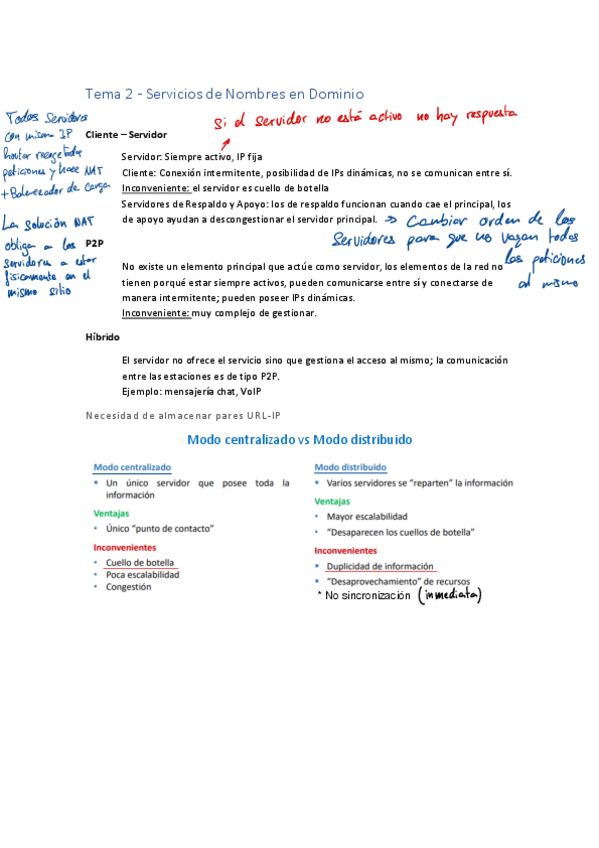 Tema 2 - Servicios de Nombres en Dominio
Todos Servidores
con misma IP
Router reenjetada
peticiones y hace NAT
+ Balanceador de carga
La solución NAT
obliga a los
servidores a estar
físicamente en el
mismo sitio
Si el servidor no está activo no hay respuesta
Cliente – Servidor
Servidor: Siempre activo, IP fija
Cliente: Conexión intermitente, posibilidad de IPs dinámicas, no se comunican entre sí.
Inconveniente: el servidor es cuello de botella
Servidores de Respaldo y Apoyo: los de respaldo funcionan cuando cae el principal, los
de apoyo ayudan a descongestionar el servidor principal.
=> Cambiar orden de los
Servidores para que no vayan todos
las peticiones
al mismo
P2P
No existe un elemento principal que actúe como servidor, los elementos de la red no
tienen porqué estar siempre activos, pueden comunicarse entre sí y conectarse de
manera intermitente; pueden poseer IPs dinámicas.
Inconveniente: muy complejo de gestionar.
Híbrido
El servidor no ofrece el servicio sino que gestiona el acceso al mismo; la comunicación
entre las estaciones es de tipo P2P.
Ejemplo: mensajería chat, VoIP
Necesidad de almacenar pares URL-IP
Modo centralizado vs Modo distribuido
Modo centralizado
• Un único servidor que posee toda la
información
Ventajas
• Único "punto de contacto"
Inconvenientes
• Cuello de botella
• Poca escalabilidad
• Congestión
Modo distribuido
• Varios servidores se "reparten" la información
Ventajas
• Mayor escalabilidad
• "Desaparecen los cuellos de botella"
Inconvenientes
• Duplicidad de información
• "Desaprovechamiento" de recursos
* No sincronización (inmediata)